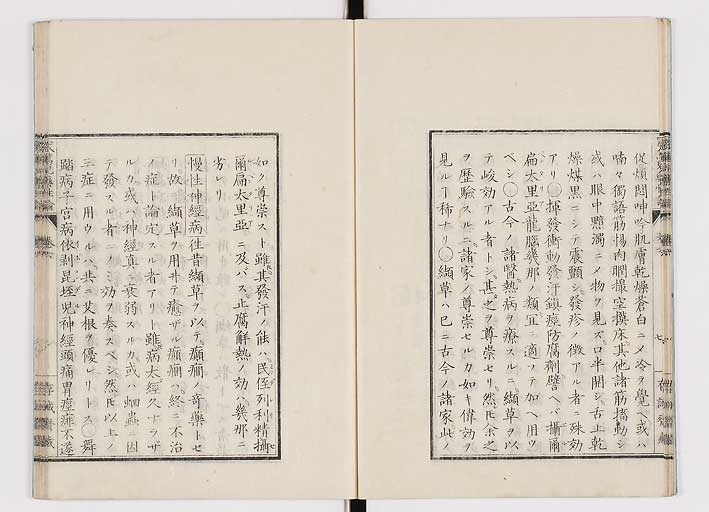 從煩悶呻吟肌膚乾燥蒼白ニメ冷ヲ覺ヘ或ハ
喃々獨語筋惕肉瞤撮空摸床其他諸筋搐動シ
或ハ眼中黯濁ニメ物ヲ見ズ口半開シ舌上乾
燥煤黒ニシテ震顫シ發疹ノ徴アル者ニ殊効
アリ○揮發衝動發汗鎮痙防腐劑譬ヘバ攝爾
扁太里亞龍腦幾那ノ類宜ニ適ツテ加ヘ用ウ
ベシ○古今ノ諸醫熱病ヲ療スルニ纈草ヲ以
テ峻効アル者トシ甚之ヲ尊崇セリ然𪜈余之
ヲ歴驗スルニ諸家ノ尊崇セル如キ偉効ヲ
見ルヿ稀ナリ○纈草ハ已ニ古今ノ諸家此ノ
如ク尊崇スト雖其發汗ノ能ハ民侄列利精攝
爾扁太里亞ニ及バス止腐解熱ノ効ハ幾那ニ
劣レリ
慢性神經病往昔纈草ヲ以テ癲癇ノ奇藥トセ
リ故ニ纈草ヲ用ヰテ癒ザル癲癇ハ終ニ不治
ノ症ト論定スル者アリト雖病大經久ナラザ
ルカ或ハ神經真ニ衰弱スルカ或ハ蛔蟲ニ因
テ發スル者ニ非レバ効ヲ奏スベシ然𪜈以上ノ
三症ニ用ウルハ共ニ艾根ヲ優レリトス○舞
踏病子宮病依剥昆垤児神經頭痛胃痙痱不遂